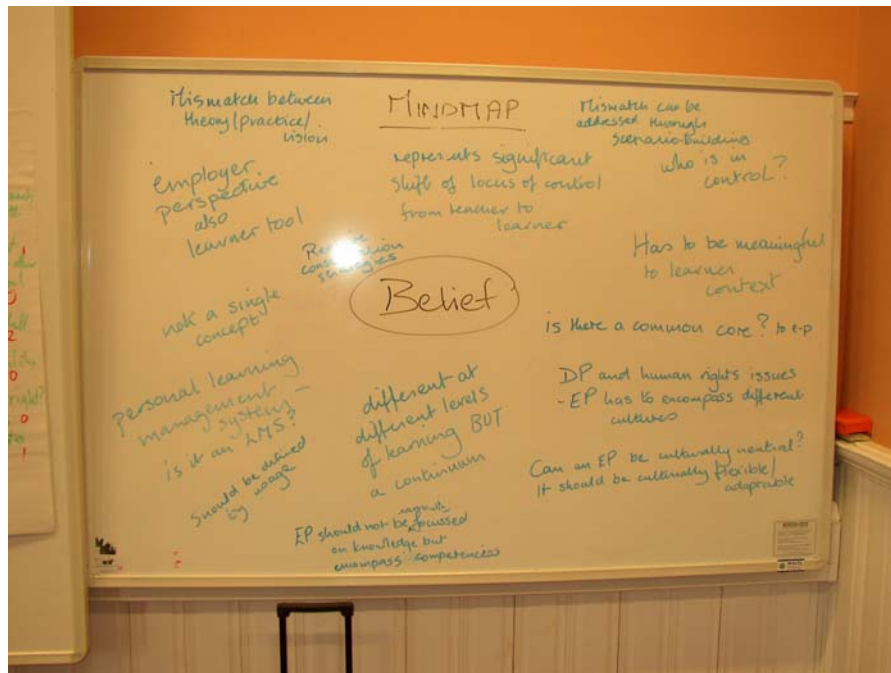 Mismatch between
theory/practice/
vision
MINDMAP
Mismatch can be
addressed through
scenario-building
who is in
control?
employer
perspective
also
learner tool
represents significant
shift of locus of control
from teacher to
learner
Has to be meaningful
to learner
context
Belief
not a single
concept
is there a common core? to e-p
personal learning
management
system –
is it an LMS?
different at
different levels
of learning BUT
a continuum
DP and human rights issues
- EP has to encompass different
cultures
Should be defined
by usage
Can an EP be culturally neutral?
It should be culturally flexible/
adaptable
EP should not be focussed
on knowledge but
encompass competences